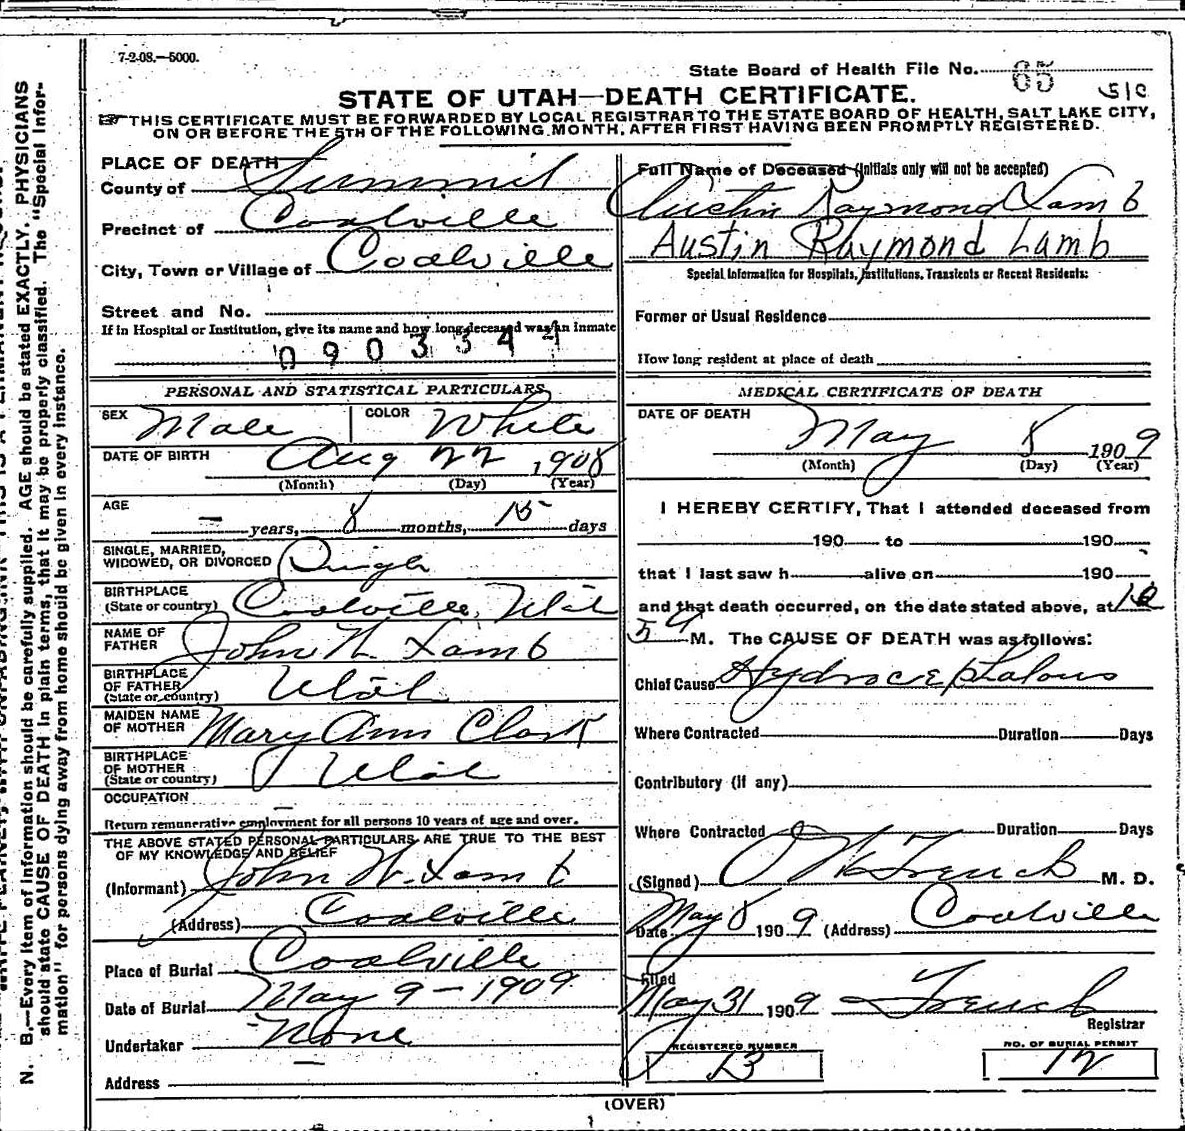 7-2-08.—5000.
State Board of Health File No. 65
510
STATE OF UTAH—DEATH CERTIFICATE.
☞THIS CERTIFICATE MUST BE FORWARDED BY LOCAL REGISTRAR TO THE STATE BOARD OF HEALTH, SALT LAKE CITY,
ON OR BEFORE THE 5TH OF THE FOLLOWING MONTH, AFTER FIRST HAVING BEEN PROMPTLY REGISTERED.
PLACE OF DEATH
County of Summit
Precinct of Coalville
City, Town or Village of Coalville
Street and No.
If in Hospital or Institution, give its name and how long deceased was an inmate
0903344
PERSONAL AND STATISTICAL PARTICULARS
SEX Male COLOR White
DATE OF BIRTH Aug 22, 1908
(Month) (Day) (Year)
AGE
— years, 8 months, 15 days
SINGLE, MARRIED,
WIDOWED, OR DIVORCED Single
BIRTHPLACE
(State or country) Coalville, Utah
NAME OF
FATHER John W. Lamb
BIRTHPLACE
OF FATHER
(State or country) Utah
MAIDEN NAME
OF MOTHER Mary Ann Clark
BIRTHPLACE
OF MOTHER
(State or country) Utah
OCCUPATION —
Return remunerative employment for all persons 10 years of age and over.
THE ABOVE STATED PERSONAL PARTICULARS ARE TRUE TO THE BEST
OF MY KNOWLEDGE AND BELIEF
(Informant) John W. Lamb
(Address) Coalville
Place of Burial Coalville
Date of Burial May 9 – 1909
Undertaker None
Address —
Full Name of Deceased (Initials only will not be accepted)
Austin Raymond Lamb
Austin Raymond Lamb
Special Information for Hospitals, Institutions, Transients or Recent Residents:
Former or Usual Residence
How long resident at place of death
MEDICAL CERTIFICATE OF DEATH
DATE OF DEATH
May 8 1909
(Month) (Day) (Year)
I HEREBY CERTIFY, That I attended deceased from
190 to 190
that I last saw h alive on 190
and that death occurred, on the date stated above, at
M. The CAUSE OF DEATH was as follows:
Chief Cause Hydrocephalous
Where Contracted Duration Days
Contributory (if any)
Where Contracted Duration Days
(Signed) French M. D.
Date May 8 1909 (Address) Coalville
Filed
May 31 1909 French
Registrar
REGISTERED NUMBER
13
NO. OF BURIAL PERMIT
12
(OVER)
N. B.—Every item of information should be carefully supplied. AGE should be stated EXACTLY. PHYSICIANS
should state CAUSE OF DEATH in plain terms, that it may be properly classified. The "Special Infor-
mation" for persons dying away from home should be given in every instance.